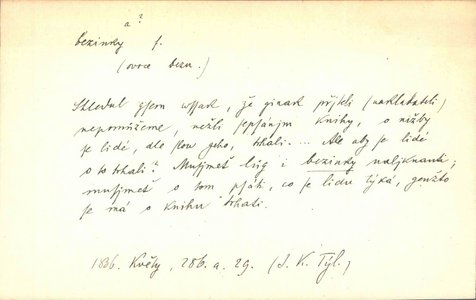 a?
bezinky f.
(ovoce bezu.)
Shledal gsem wssak, že ginak přjteli (nakladateli)
nepomůžeme, nežli sepsánjm knihy, o njžby
se lidé, dle slow geho, trhali.... Ale aby se lidé
o to trhali? Musjmeťljg i bezinky naljknauti;
musjmeť o tom psáti, co se lidu týká, genžto
se má o knihu trhati.
1836. Květy, 286.a. 29. (J. K. Tyl.)